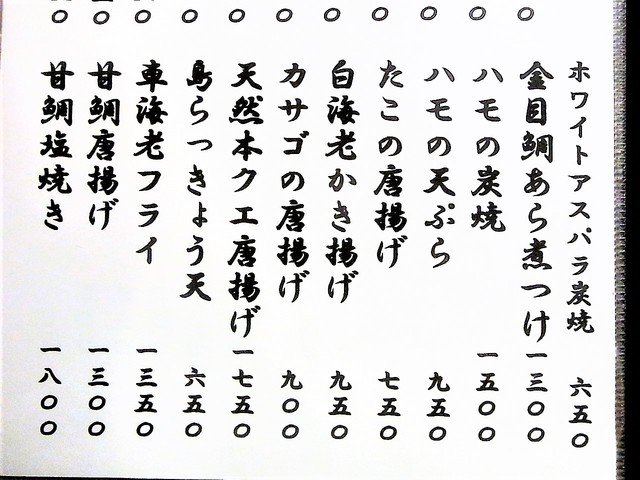 ホワイトアスパラ炭焼 六五〇
金目鯛あら煮つけ 一三〇〇
ハモの炭焼 一五〇〇
ハモの天ぷら 九五〇
たこの唐揚げ 七五〇
白海老かき揚げ 九五〇
カサゴの唐揚げ 九〇〇
天然本クエ唐揚げ 一七五〇
島らっきょう天 六五〇
車海老フライ 一三五〇
甘鯛唐揚げ 一三〇〇
甘鯛塩焼き 一八〇〇